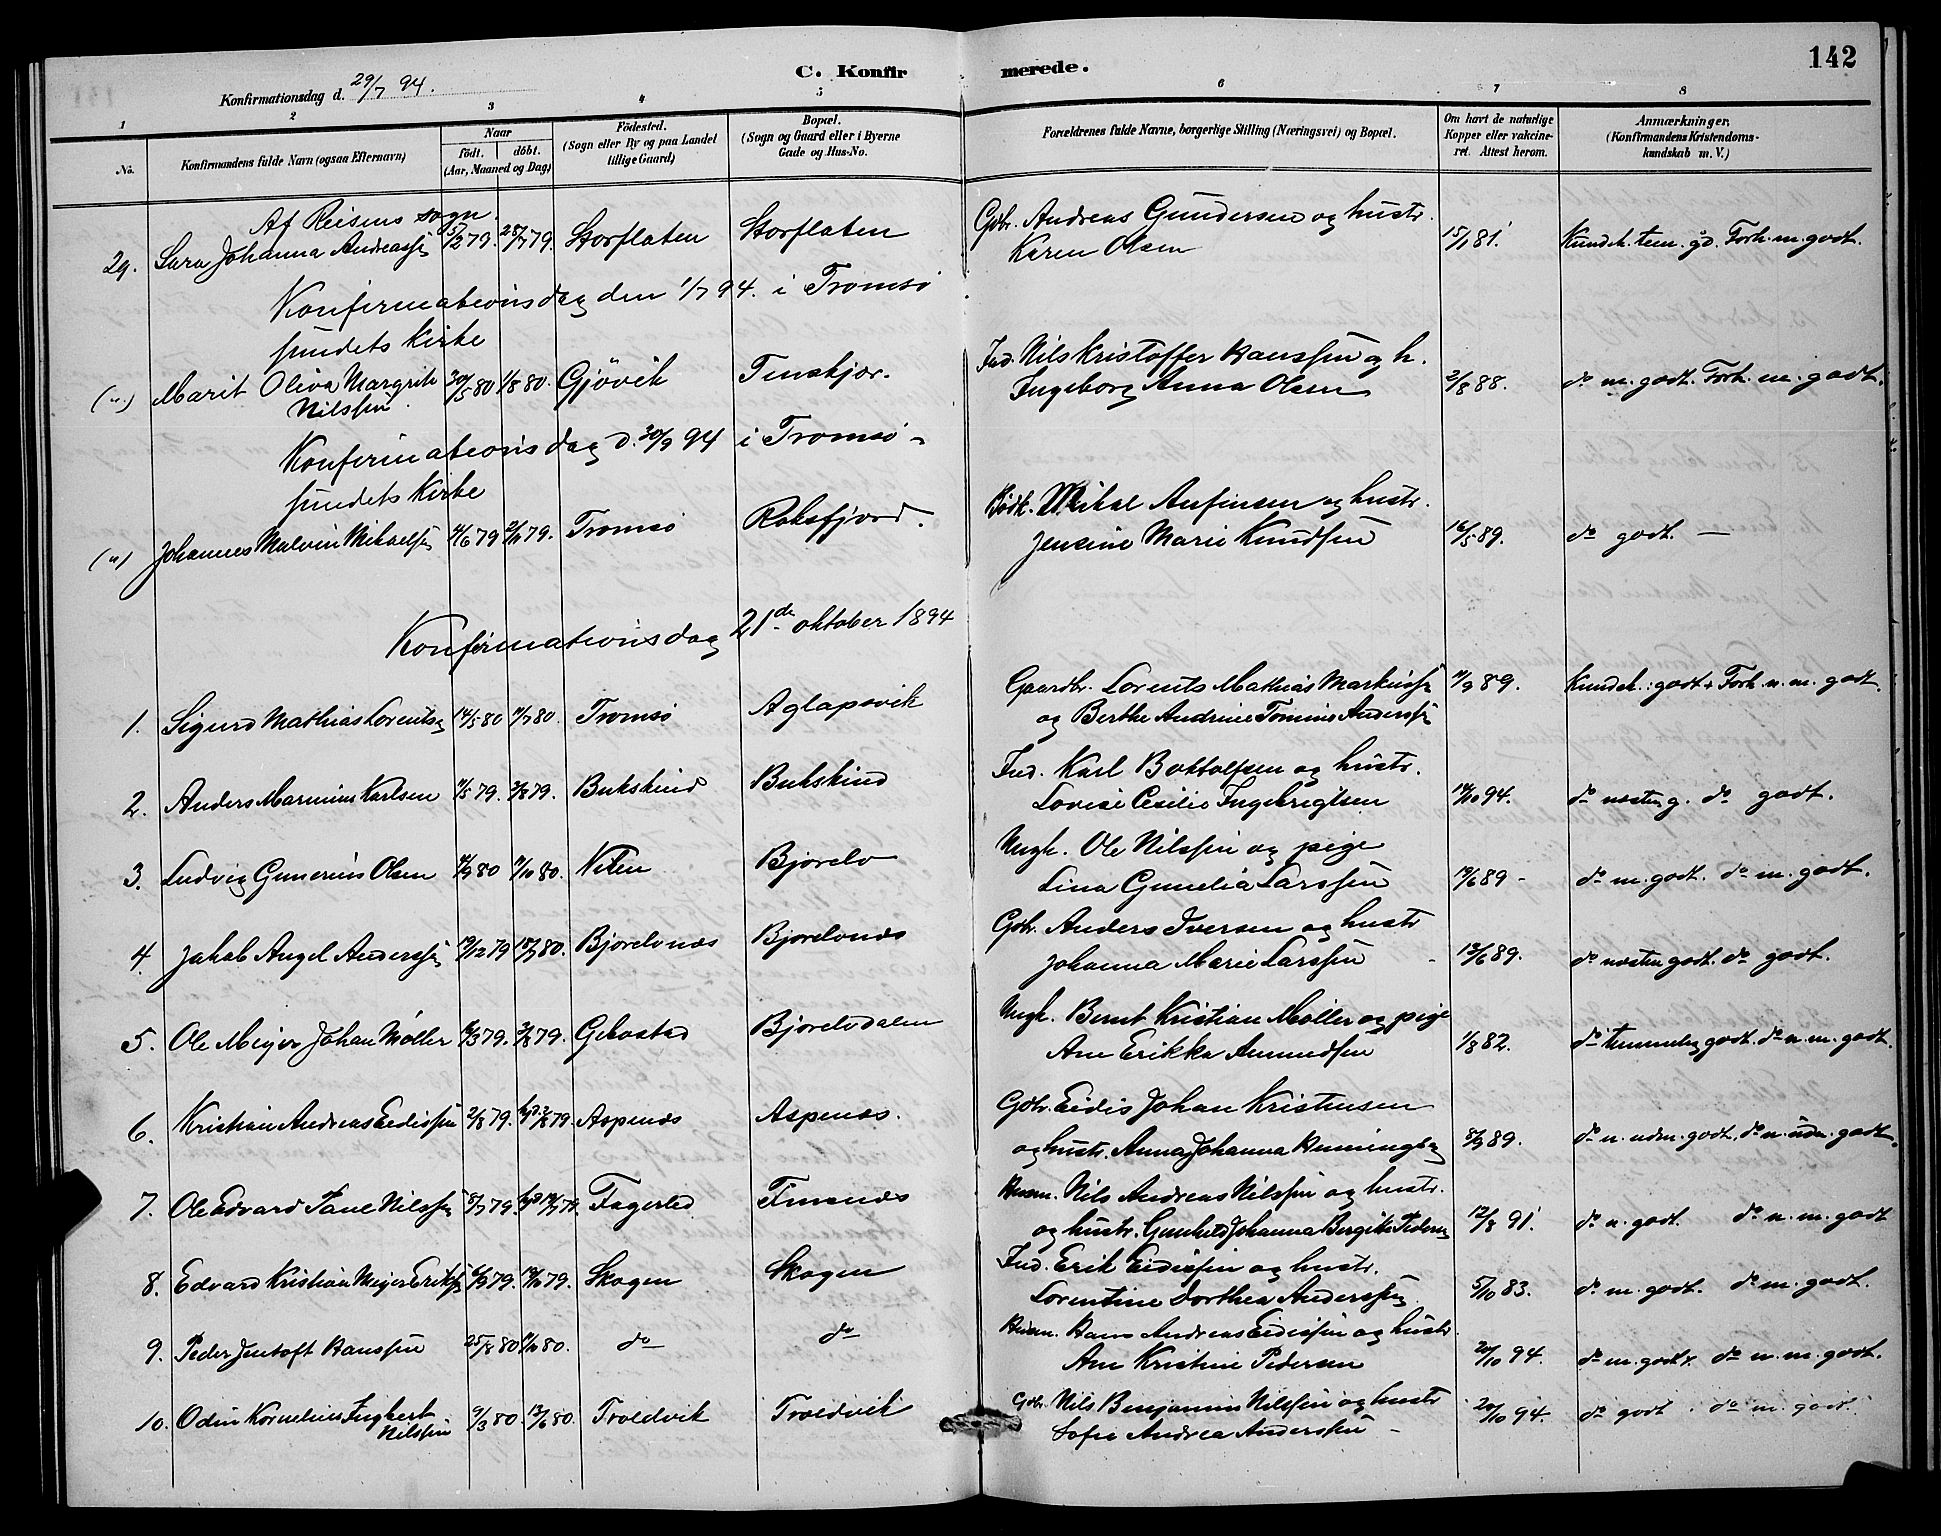 142
C. Konfir merede.
Konfirmationsdag d. 29/7 94.
1 2 3 4 5 6 7 8
No. Konfirmandens fulde Navn (ogsaa Efternavn) Naar födt. döbt. (Aar, Maaned og Dag) Födested. (Sogn eller By og paa Landet tillige Gaard) Bopæl. (Sogn og Gaard eller i Byerne Gade og Hus-No. Forældrenes fulde Navne, borgerlige Stilling (Næringsvei) og Bopæl. Om havt de naturlige Kopper eller vakcineret. Attest herom. Anmærkninger, (Konfirmandens Kristendomskundskab m. V.)
Af Reisens sogn.
29. Sara Johanna Andreassen 79. 79. Storflaten Storflaten Gdbr. Andreas Gundersen og hustr. Karen Olsen 15/1 81. Kundsk. tem. gd. Forh. m. godt.
Konfirmationsdag den 1/7 94. i Tromsö
sundets kirke
(") Marit Oliva Margrite Nilssen 30/5 80 1/8 80. Gjövik Finskjær. Ind. Nils Kristoffer Hanssen og h. Ingeborg Anna Olsen 2/8 88. do m. godt. Forh. m. godt.
Konfirmationsdag d. 30/9 94 i Tromsö-
sundets Kirke
(") Johannes Malvin Mikaelsen 4/6 79 79. Tromsö Raksfjord. Mikal Anfinsen og hustr. Jensine Marie Knudsen 16/5 89. do godt. —
Konfirmationsdag 21de oktober 1894
1. Sigurd Mathias Lorentsen 14/5 80 11/7 80. Tromsö Aglapsvik Gaardbr. Lorents Mathias Markussen og Berthe Andrine Tomine Anderssen 11/9 89. Kundsk.: godt. Forh. n. m. godt.
2. Anders Marinius Karlsen 11/5 79. 3/8 79. Bukskind Bukskind Ind. Karl Bottolfsen og hustr. Lovise Cesilie Ingebrigtsen 14/10 94. do næsten g. do godt.
3. Ludvig Gunerius Olsen 80 11/10 80. Bjorelv Ungk. Ole Nilssen og pige Lina Gunelia Larssen 19/6 89 - do m. godt. do m. godt.
4. Jakob Angel Anderssen 19/12 79 80. Bjorelvnes Bjorelvnes Gdbr. Anders Iversen og hustr Johanna Marie Larssen 13/6 89. do næsten godt. do godt.
5. Ole Meyer Johan Møller 79. 3/8 79. Gebostad Bjorelvdalen Ungk. Bernt Kristian Møller og pige Ane Erikka Amundsen 1/8 82. do temmelig godt. do n. m. godt.
6. Kristian Andreas Eidissen 2/8 79. 79. Aspenes Aspenes. Gdbr. Eidis Johan Kristensen og hustr. Anna Johanna Henningsen 8/9 89. do n. udm. godt. do n. udm. godt.
7. Ole Edvard Pane Nilssen 8/7 79. Fagerlid Finsnes Husm. Nils Andreas Nilssen og hustr. og hustr. Gunhild Johanna Bergitte Pedersen 12/8 91. do n. godt. do n. m. godt
8. Edvard Kristian Meyer Eriksen 6/9 79. 19/10 79. Skogen Skogen Ind. Erik Eidissen og hustr. Lorentine Dorthea Anderssen 5/10 83. do m. godt. do m. godt.
9. Peder Jentoft Hanssen 25/8 80 80. do do Husm. Hans Andreas Eidissen og hustr Ane Kristine Pedersen 20/10 94. do m. godt. do n. m. godt.
10. Odin Kornelius Ingbert Nilssen 9/3 80. 13/6 80. Troldvik Troldvik Gdbr. Nils Benjamin Nilssen og hustr Sofie Andrea Anderssen 20/10 94 - do godt. do m. godt.